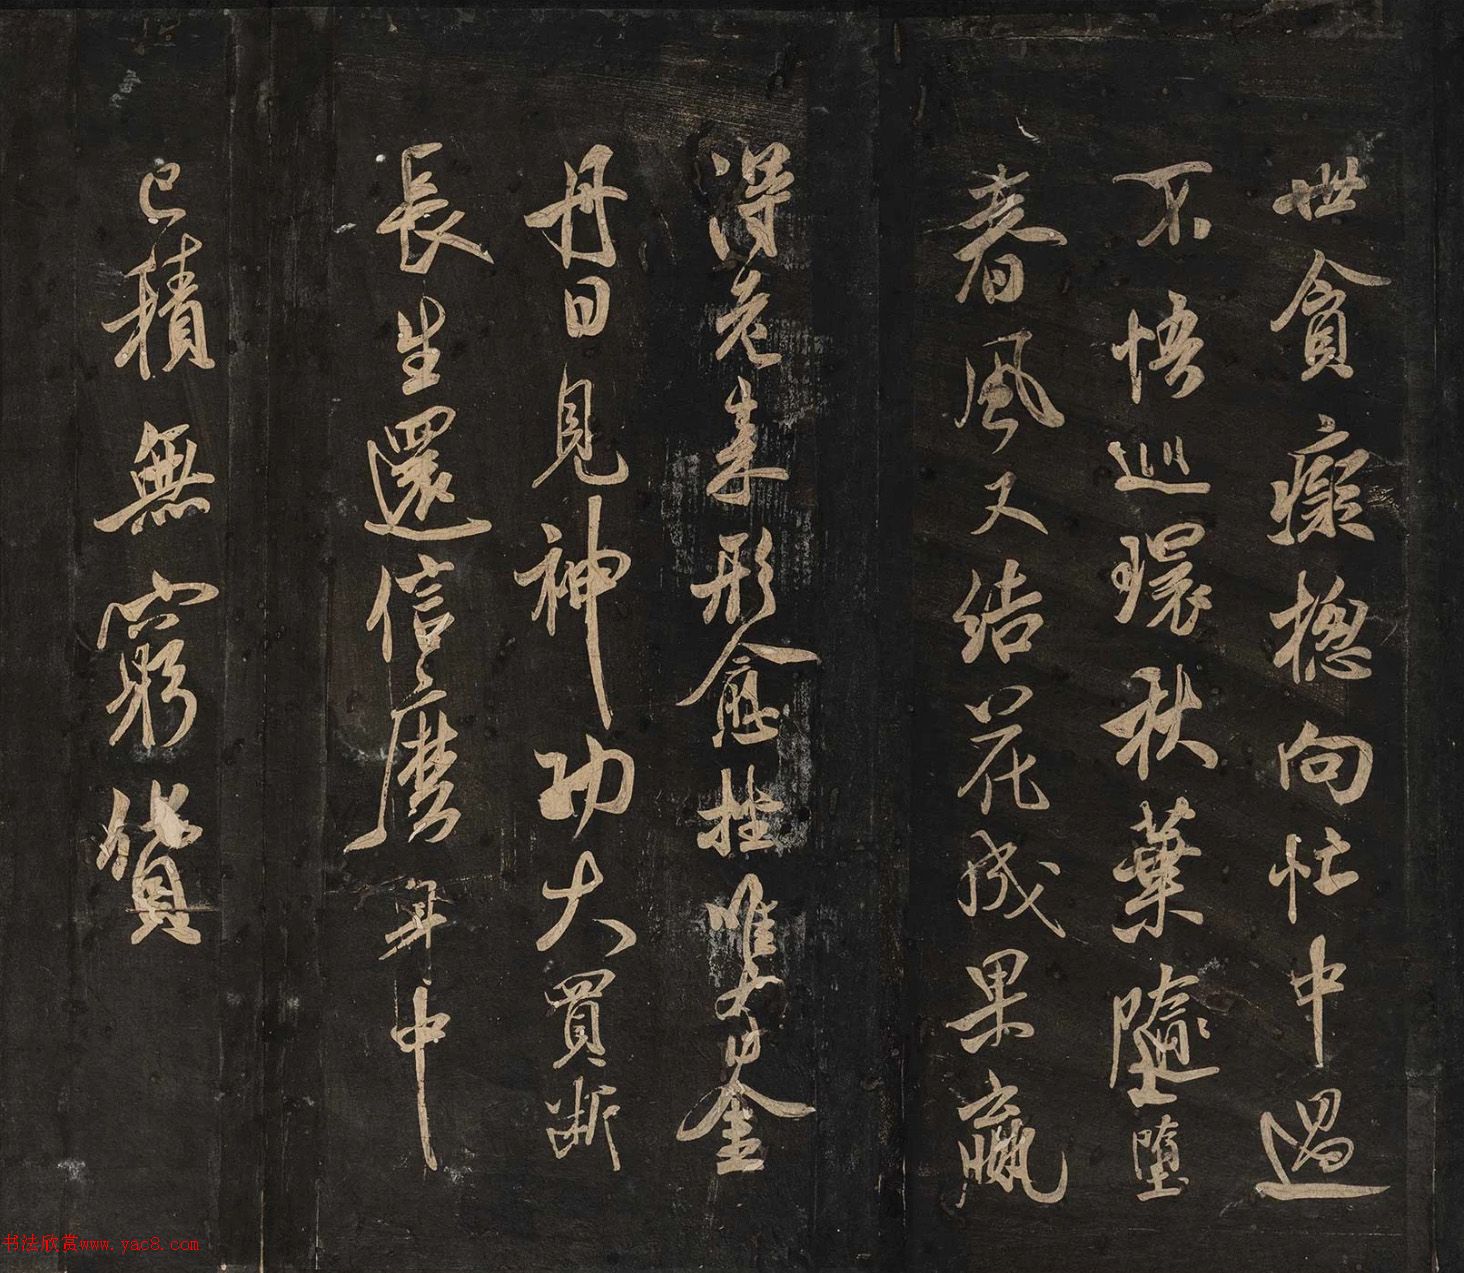 世貪癡捴向忙中過
不悟巡環秋葉隨墮
春風又結花成果贏
得老来形愈拙唯有金
丹日見神功大買断
長生還信曆年中
已積無窮貨
书法欣赏www.yac8.com